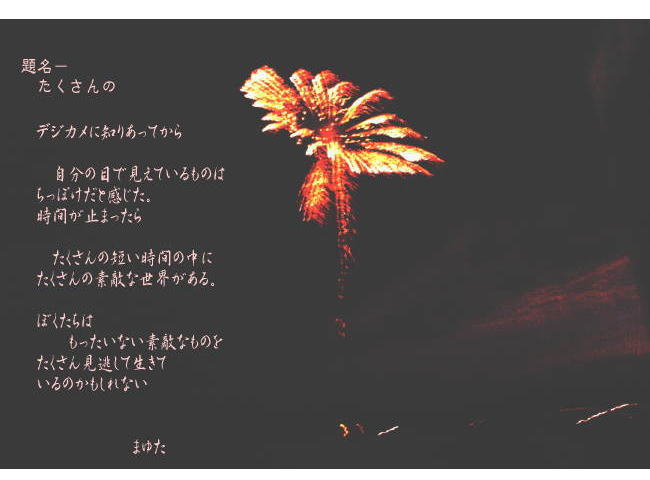 題名－
たくさんの
デジカメに知りあってから
自分の目で見えているものは
ちっぽけだと感じた。
時間が止まったら
たくさんの短い時間の中に
たくさんの素敵な世界がある。
ぼくたちは
もったいない素敵なものを
たくさん見逃して生きて
いるのかもしれない
まゆた